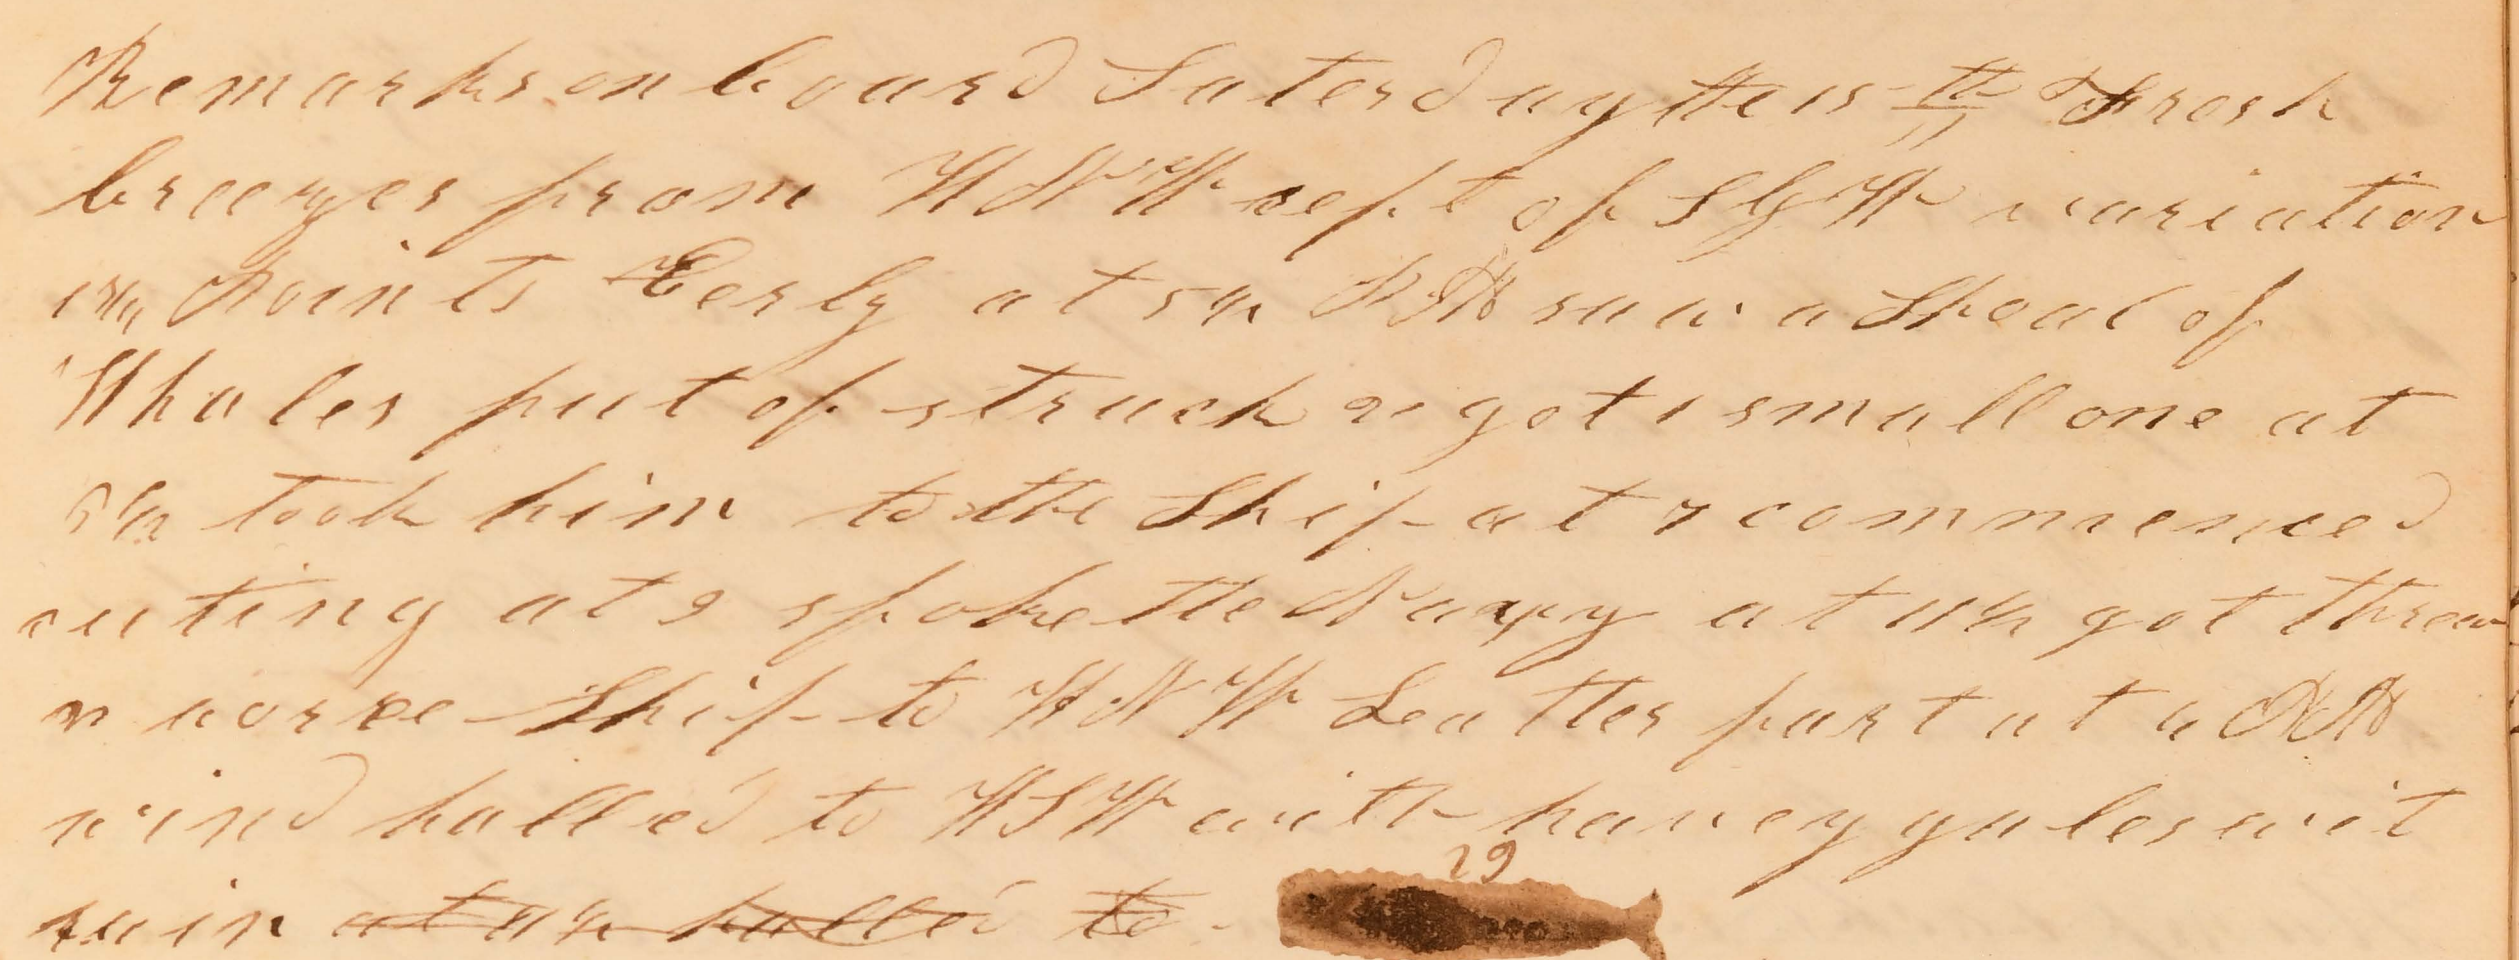 Remarks on board Saterday the 15th Fresh
breezes from WNW cept of SbyW variation
1 3/4 Points Eerly at 5 1/2 AM saw a Shoal of
Whales put of struck & got 1 small one at
6 1/2 took him to the Ship at 7 commenced
cuting at 9 spoke the Navy at 11 1/2 got threw
& woree Ship to WNW Leatter part at 4 PM
wind halled to WSW with havey gales wit
rain at 4 1/2 halled to
29